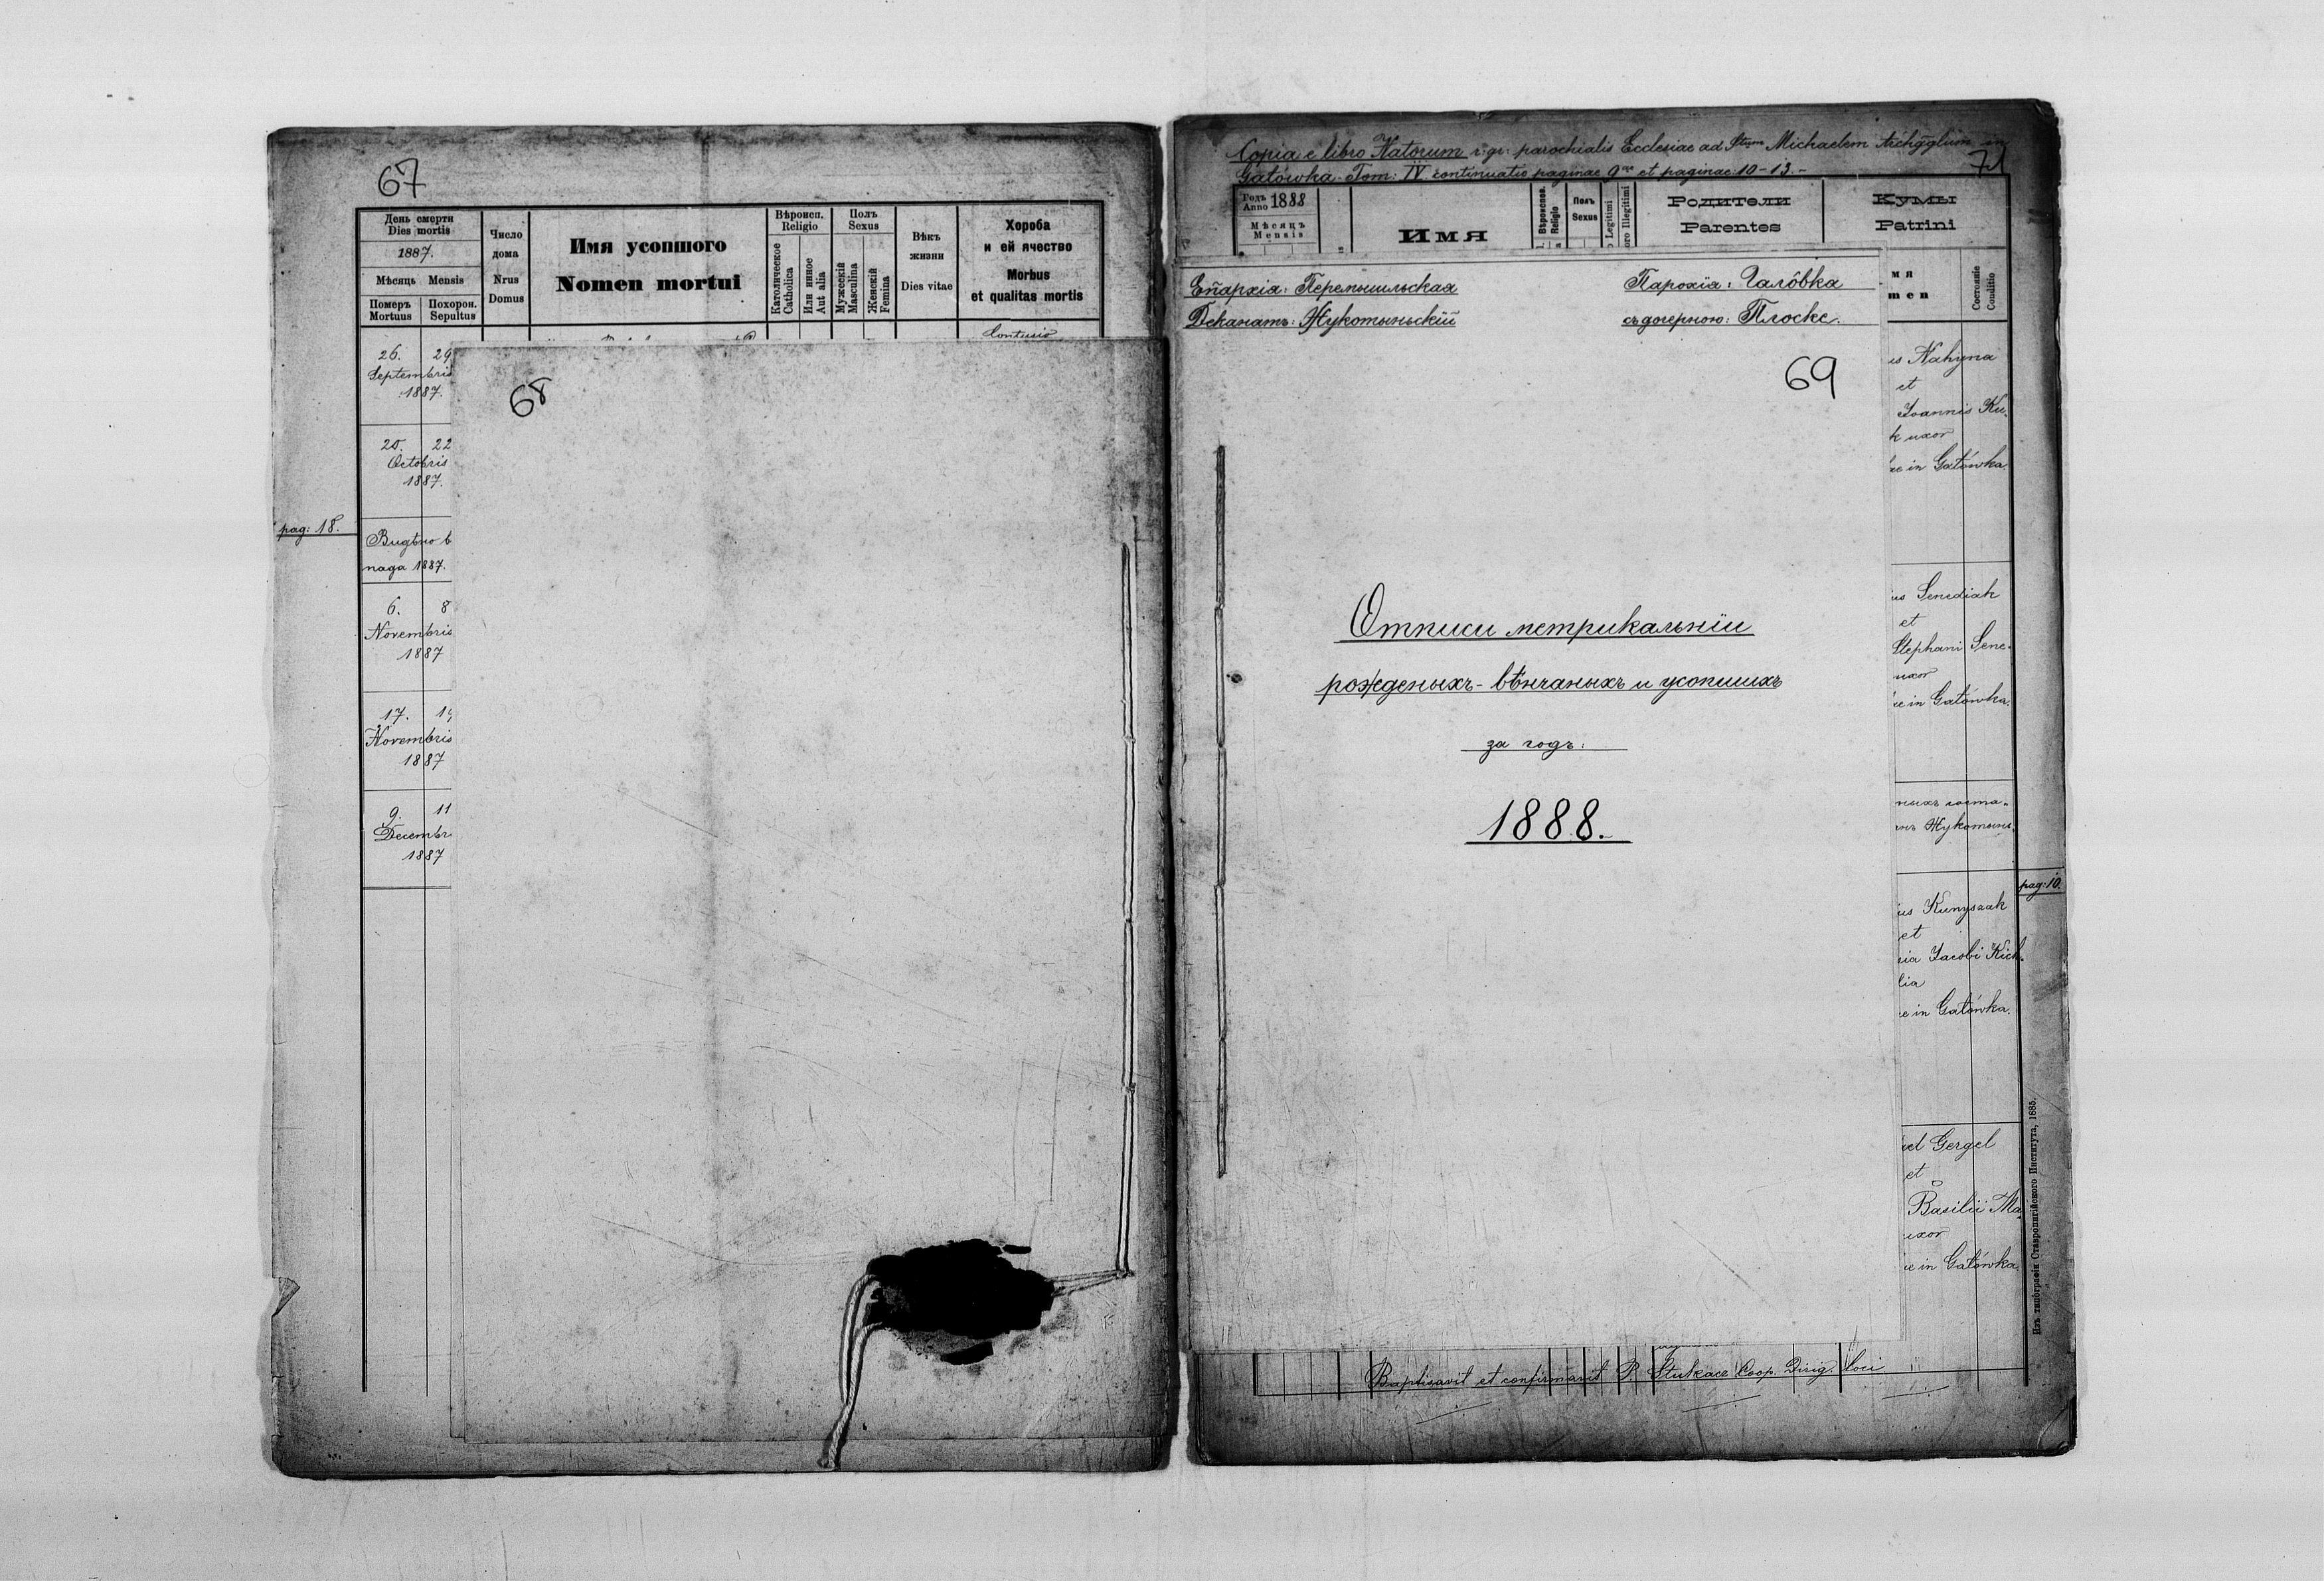 67
День смерти
Dies mortis
1887.
Мѣсяць Mensis
Померъ
Mortuus
Похорон.
Sepultus
Число
дома
Nrus
Domus
Имя усопшого
Nomen mortui
Вѣроисп.
Religio
Католическое
Catholica
Или инное
Aut alia
Полъ
Sexus
Мужескій
Masculina
Женскій
Femina
Вѣкъ
жизни
Dies vitae
Хороба
и ей ячество
Morbus
et qualitas mortis
Contusio
26. 29
Septembris
1887.
20. 22
Octobris
1887.
pag: 18.
Видѣно в
1887.
6. 8
Novembris
1887
17. 19
Novembris
1887
9. 11
Decembr
1887
68
Copia e libro Natorum r. gr: parochialis Ecclesiae ad Stum Michaelem Archgglum in
Gałówka. Tom: IV. continuatio paginae 9nae et paginae 10-13.-
71
Годъ
Anno 1888
Мѣсяцъ
Mensis
Имя
Вѣроиспов.
Religio
Полъ
Sexus
Legitimi
oro Illegitimi
Родители
Parentes
Кумы
Patrini
мя
men
Состояніе
Conditio
Епархіа: Перемышльская
Деканатъ: Жукотыньскій
Парохіа: Галôвка
съ дочерною: Плоске.
69
Отписи метрикальніи
рожденыхъ - вѣнчаныхъ и усопшихъ
за годъ:
1888.
us Nahyna
et
Joannis Ku-
k uxor
ae in Gałówka.
us Senediak
et
Stephani Sene-
uxor
ae in Gałówka.
ныхъ
Жукотынь-
pag: 10.
us Kunyszak
et
ria Jacobi Kich-
lia
e in Gałówka.
el Gergel
et
Basilii Ma
uxor
ae in Gałówka.
Изъ типографіи Ставропигійского Института, 1885.
Baptisavit et confirmavit P. Stukacz Coop. Dirig. loci